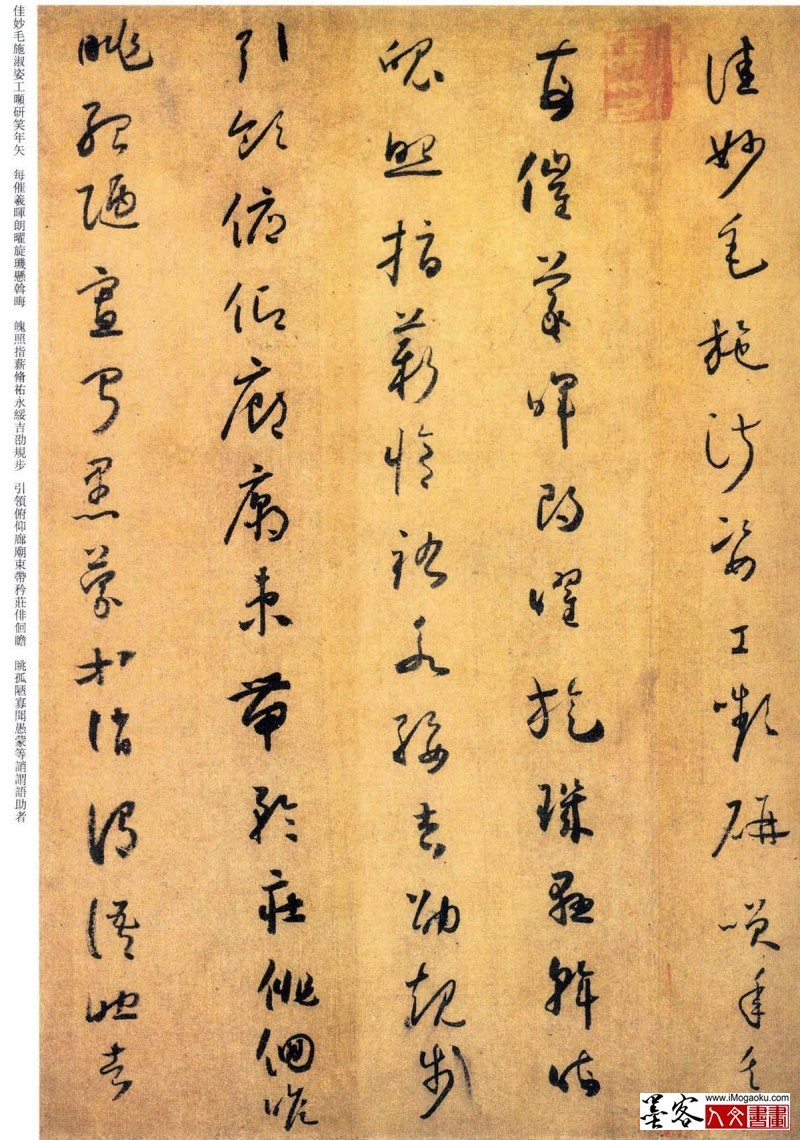 佳妙毛施淑姿工嚬研笑年矢
每催羲暉朗曜旋璣懸斡晦
魄照指薪脩祜永綏吉劭規步
引領俯仰廊廟束帶矜莊俳佪瞻
眺孤陋寡聞愚蒙等誚謂語助者
佳妙毛施淑姿工嚬研笑年矢 每催羲暉朗曜旋璣懸斡晦 魄照指薪脩祐永綏吉劭規步 引領俯仰廊廟束帶矜莊俳佪瞻 眺孤陋寡聞愚蒙等誚謂語助者
墨客
www.iMogaoku.com
人文書畫